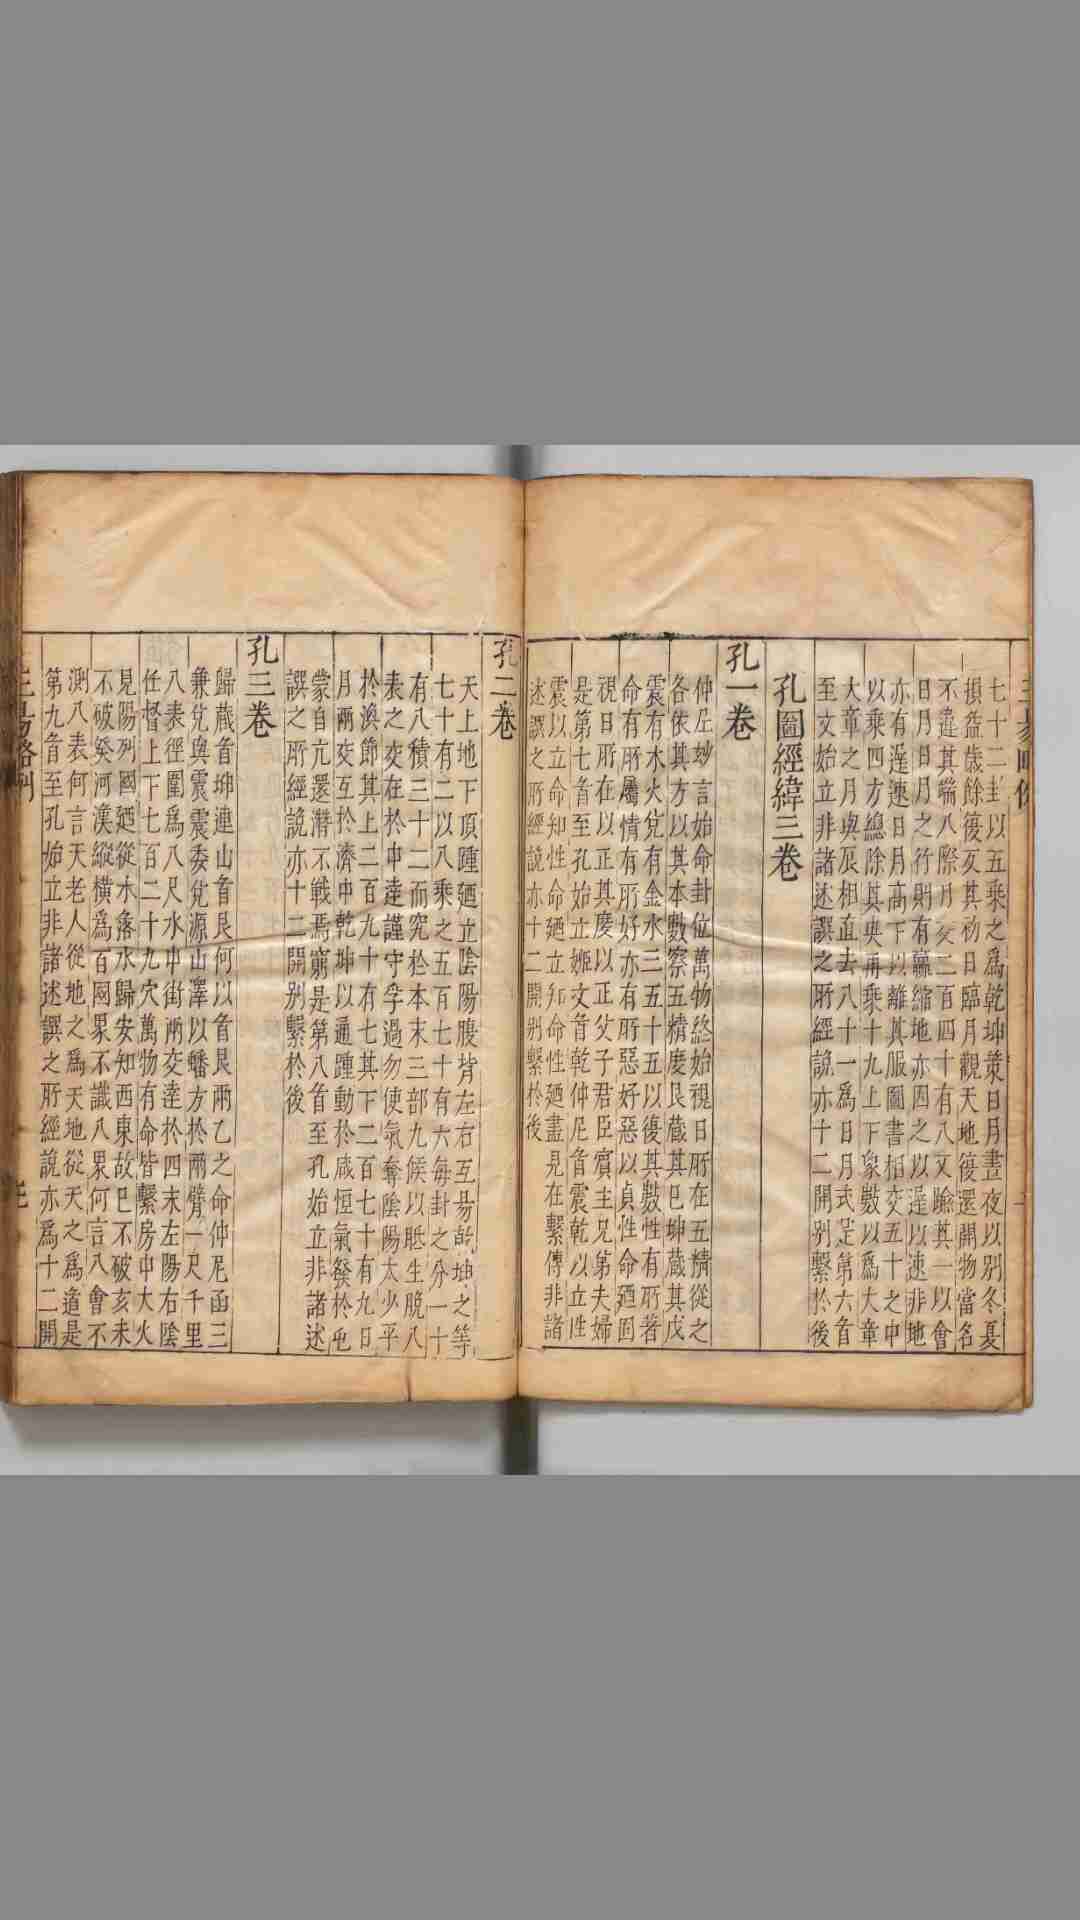 七十二卦以五乘之爲乾坤策日月晝夜以別冬夏
損益歲餘復交其初日臨月觀天地復還開物當名
不違其端八際月交二百四十有八交驗其一以會
日月日月之行則有贏縮地亦四之以遲以速非地
亦有遲速日月高下以離其服圖書相交五十之中
以乘四方總除其央再乘十九上下象數以爲大章
大章之月與辰相直去八十一爲日月式是第六首
至文始立非諸述譔之所經說亦十二開別繫於後
孔圖經緯三卷
孔一卷
仲尼妙言始命卦位萬物終始視日所在五精從之
各依其方以其本數察五精度艮藏其巳坤藏其戊
震有木火兌有金水三五十五以復其數性有所著
命有所屬情有所好亦有所惡好惡以貞性命廼囿
視日所在以正其慶以正父子君臣賓主兄弟夫婦
是第七首至孔始立姬文首乾仲尼首震乾以立性
震以立命知性命廼立知命性廼盡見在繫傳非諸
述譔之所經說亦十二開別繫於後
孔二卷
天上地下頂踵廼立陰陽腹背左右互易乾坤之等
七十有二以八乘之五百七十有六每卦之分一十
有八積三十二而究於本末三部九候以胜生脫八
表之交在於中逵謹守孚過勿使氣奪陰陽太少平
於渙節其上二百九十有七其下二百七十有九日
月兩交互於濟中乾坤以通踵動於咸恒氣發於屯
蒙自亢還潛不戰焉窮是第八首至孔始立非諸述
譔之所經說亦十二開別繫於後
孔三卷
歸藏首坤連山首艮何以首艮兩乙之命仲尼函三
兼兌與震震委兌源山澤以蟠方於兩臂一尺千里
八表徑圍爲八尺水中街兩交逵於四末左陽右陰
任督上下七百二十九穴萬物有命皆繫房中大火
見陽列國廼從水落水歸安知西東故巳不破亥未
不破癸河漢縱橫爲百囦界不識八界何言八會不
測八表何言天老人從地之爲天地從天之爲道是
第九首至孔始立非諸述譔之所經說亦爲十二開